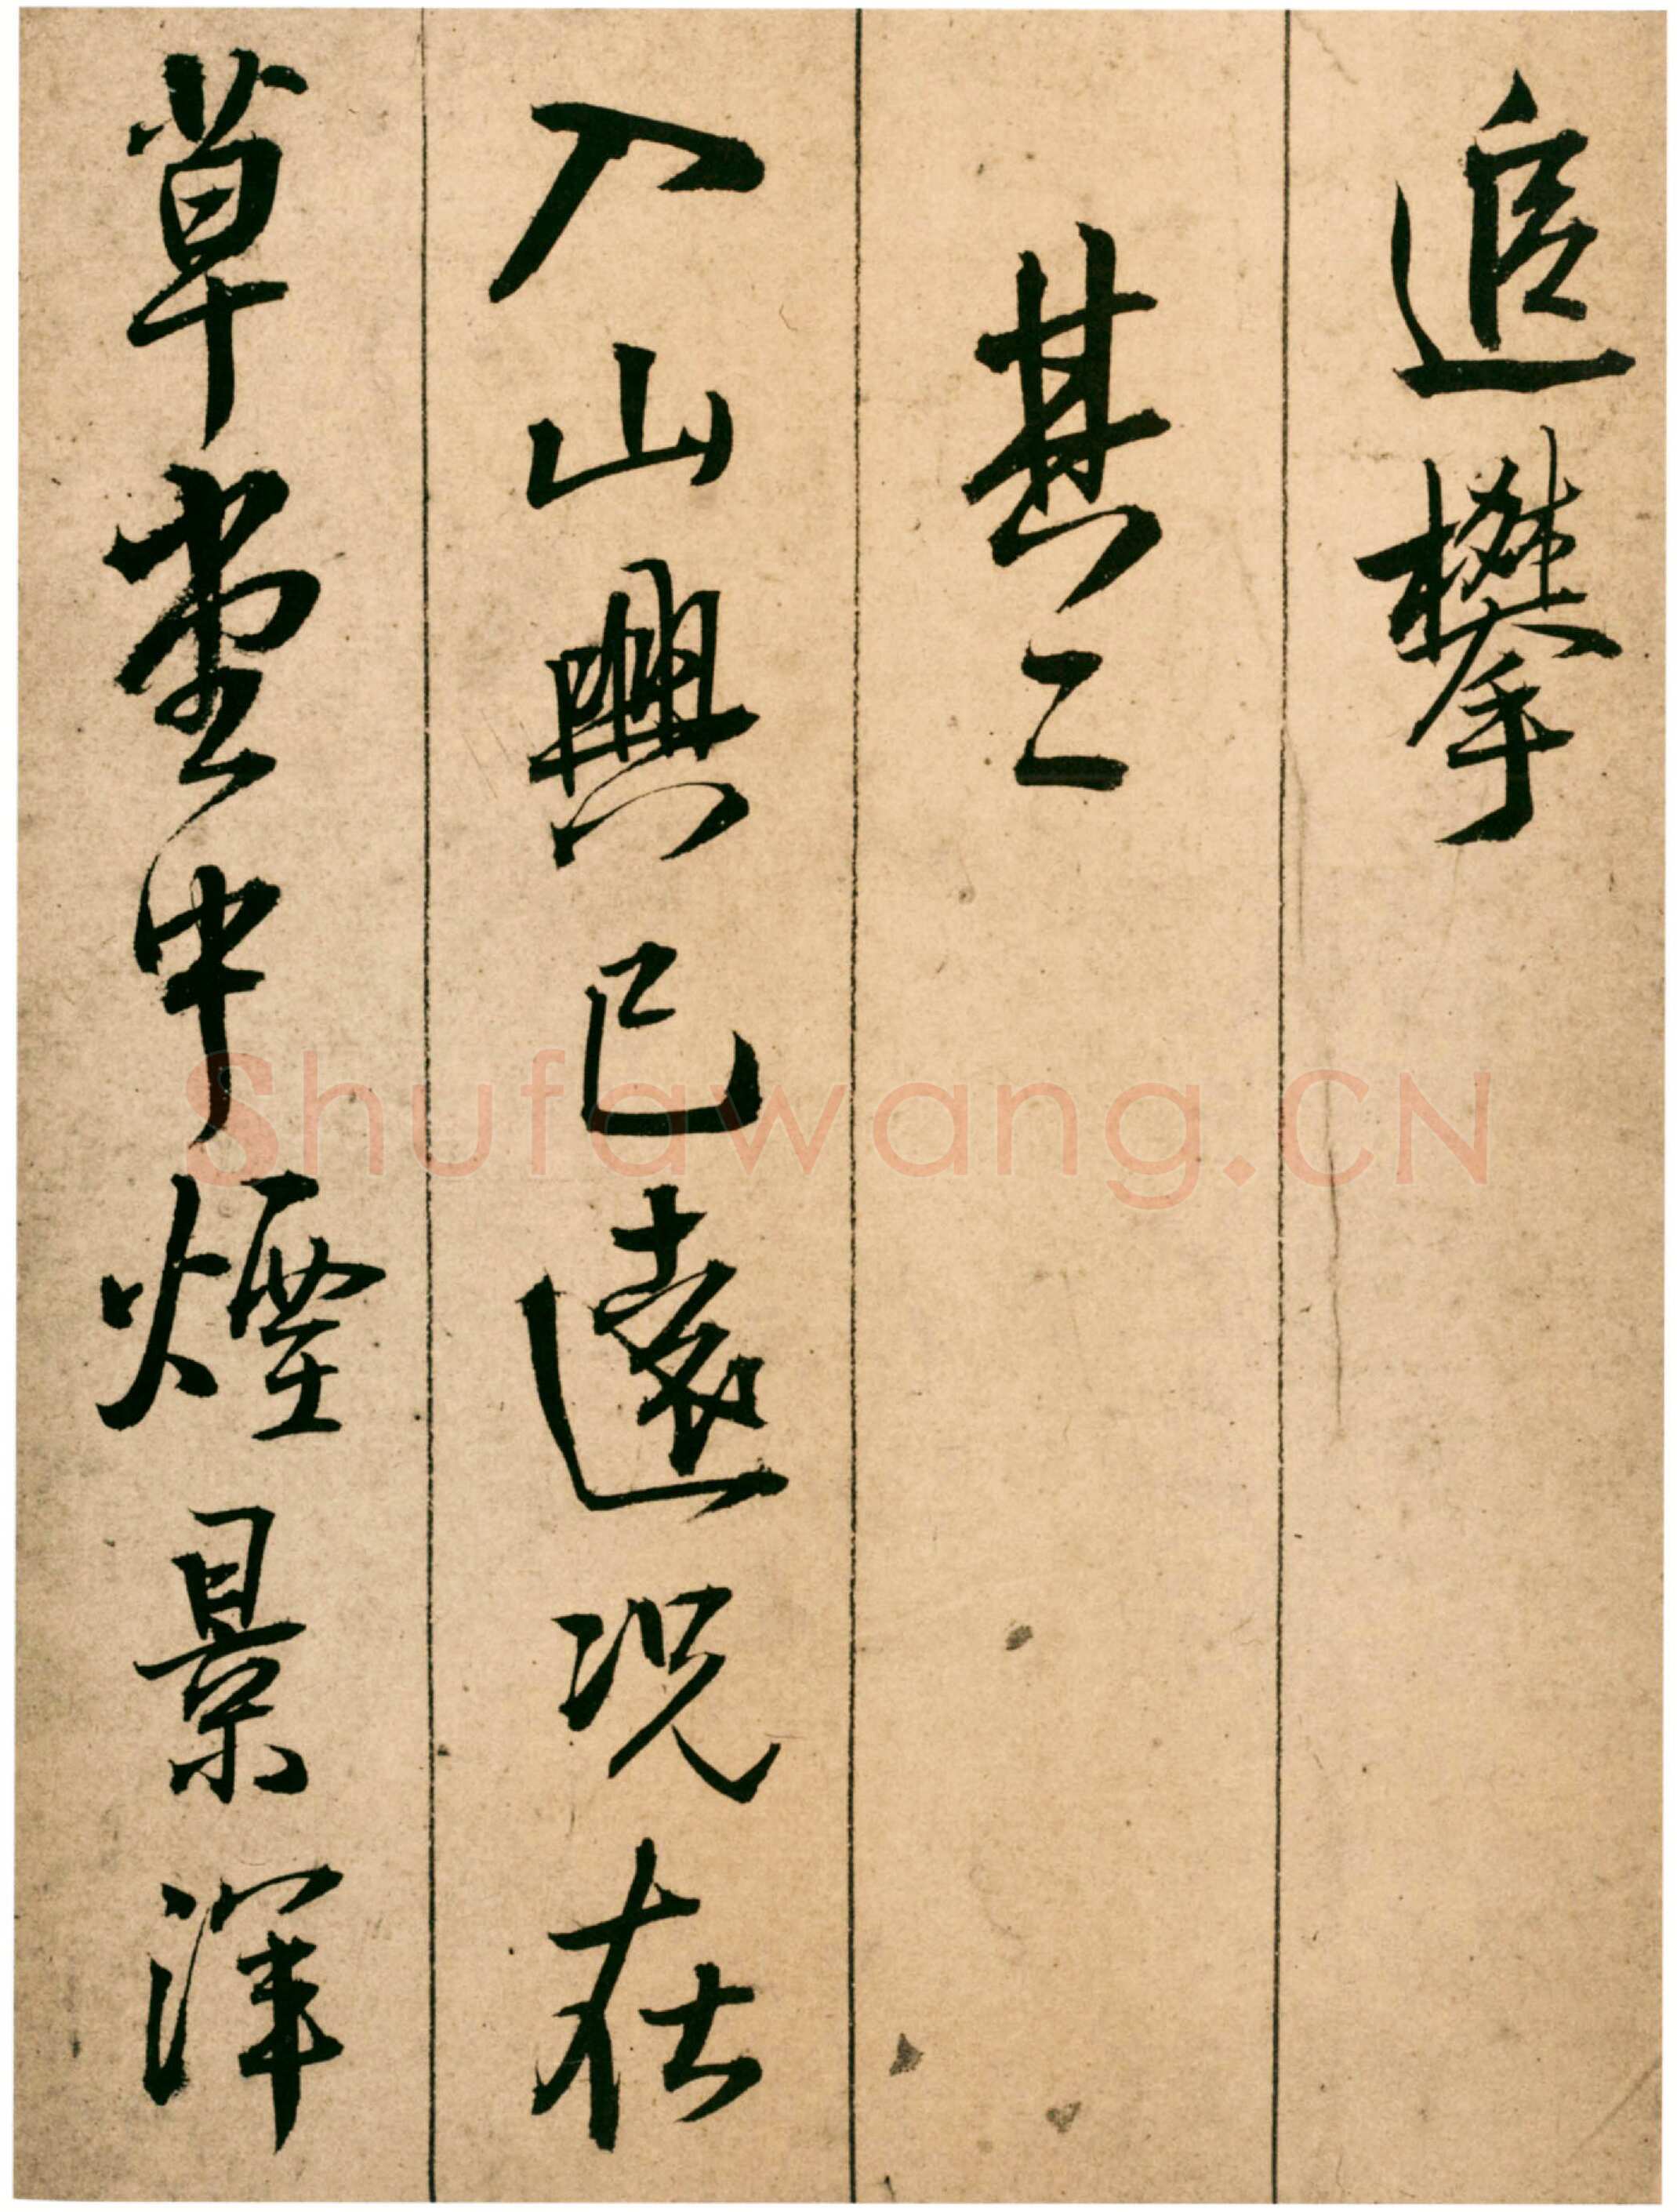 追攀
其二
入山興已遠況在
草堂中煙景渾
Shufawang.CN